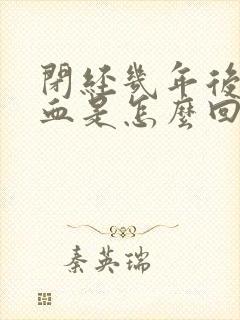 閉經幾年後
血是怎麼回
秦英瑞